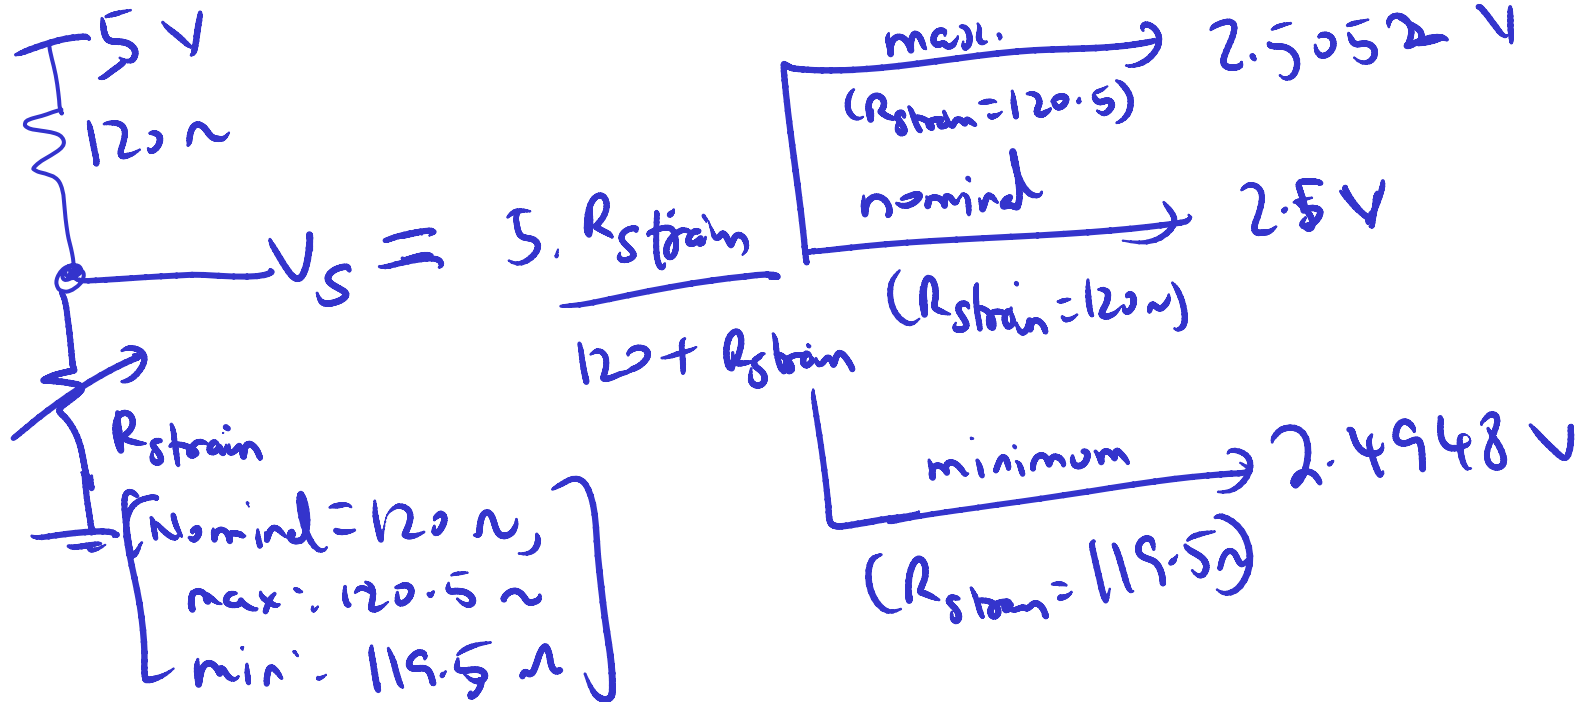 5 V
120 Ω
V_S = 5. R_strain / 120 + R_strain
max.
(R_strain = 120.5)
2.5052 V
nominal
(R_strain = 120 Ω)
2.5 V
minimum
(R_strain = 119.5 Ω)
2.4948 V
R_strain
[Nominal = 120 Ω,
max: 120.5 Ω
min: 119.5 Ω]